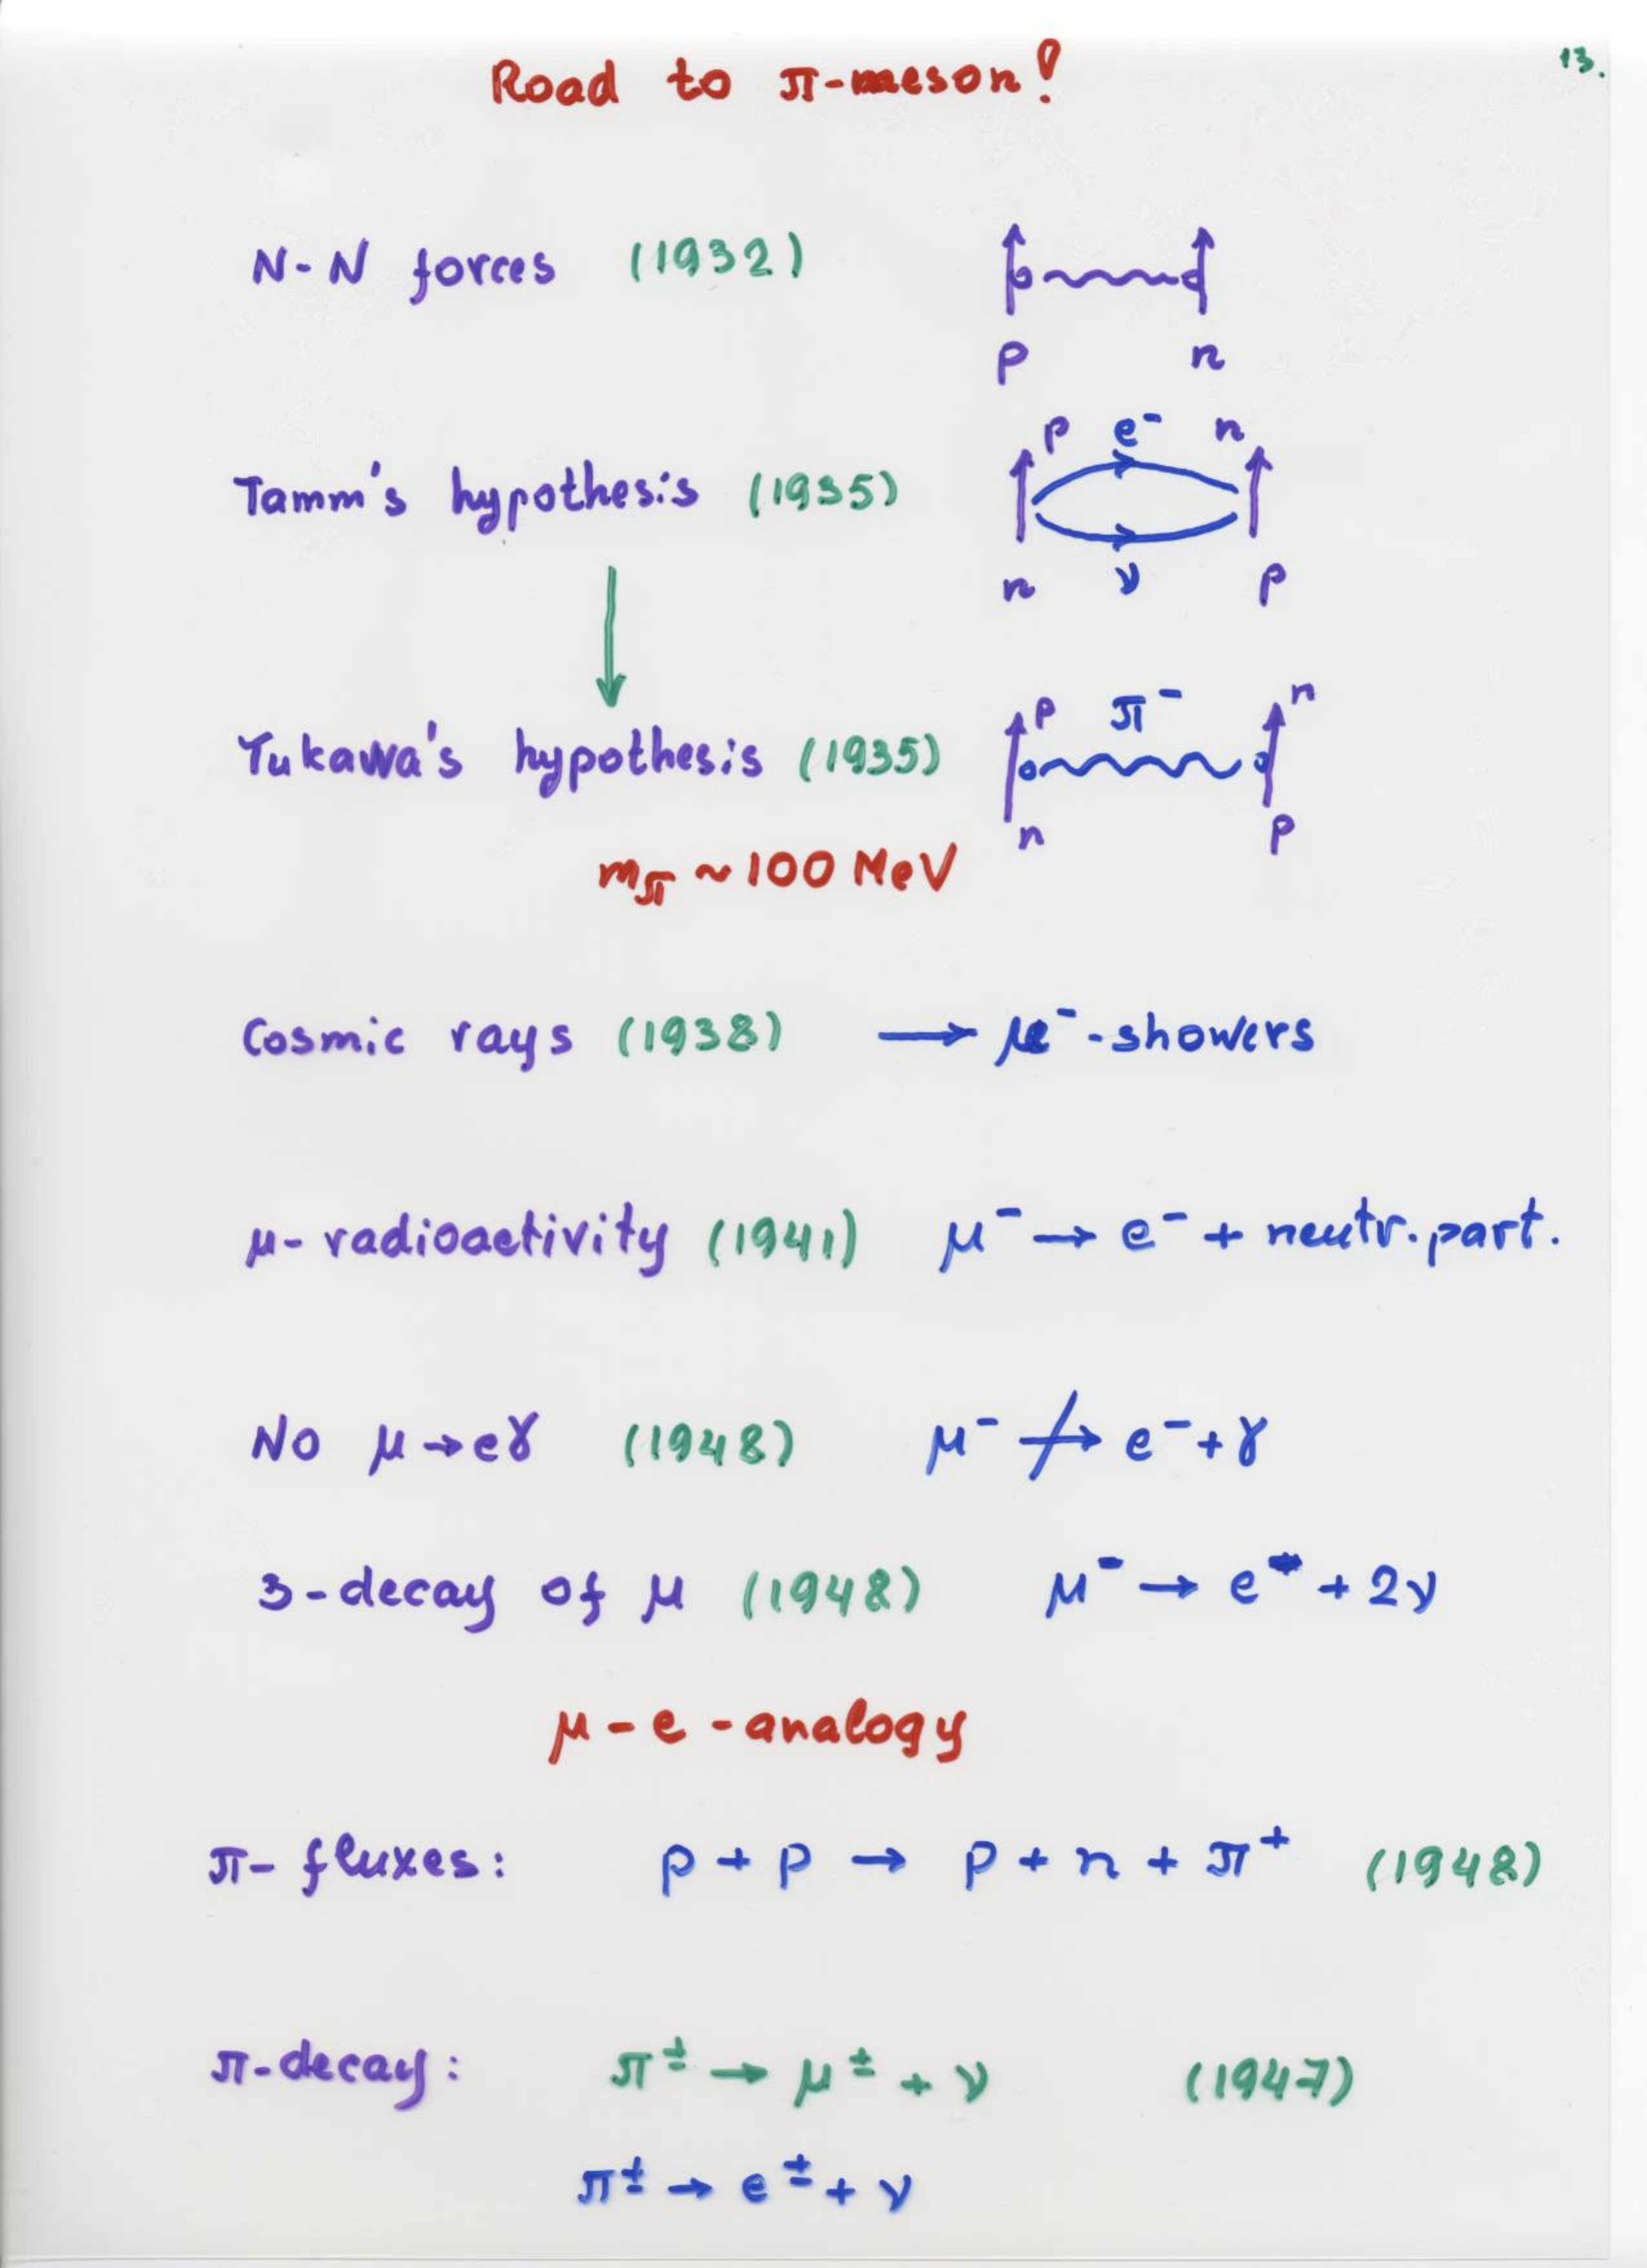 13.
Road to π-meson!
N-N forces (1932)
p n
p e⁻ n
Tamm's hypothesis (1935)
n ν p
p π⁻ n
Yukawa's hypothesis (1935)
n p
m_π ~ 100 MeV
Cosmic rays (1938) → μ⁻-showers
μ-radioactivity (1941) μ⁻ → e⁻ + neutr. part.
No μ→eγ (1948) μ⁻ ↛ e⁻ + γ
3-decay of μ (1948) μ⁻ → e⁻ + 2ν
μ-e-analogy
π-fluxes: p + p → p + n + π⁺ (1948)
π-decay: π± → μ± + ν (1947)
π± → e± + ν